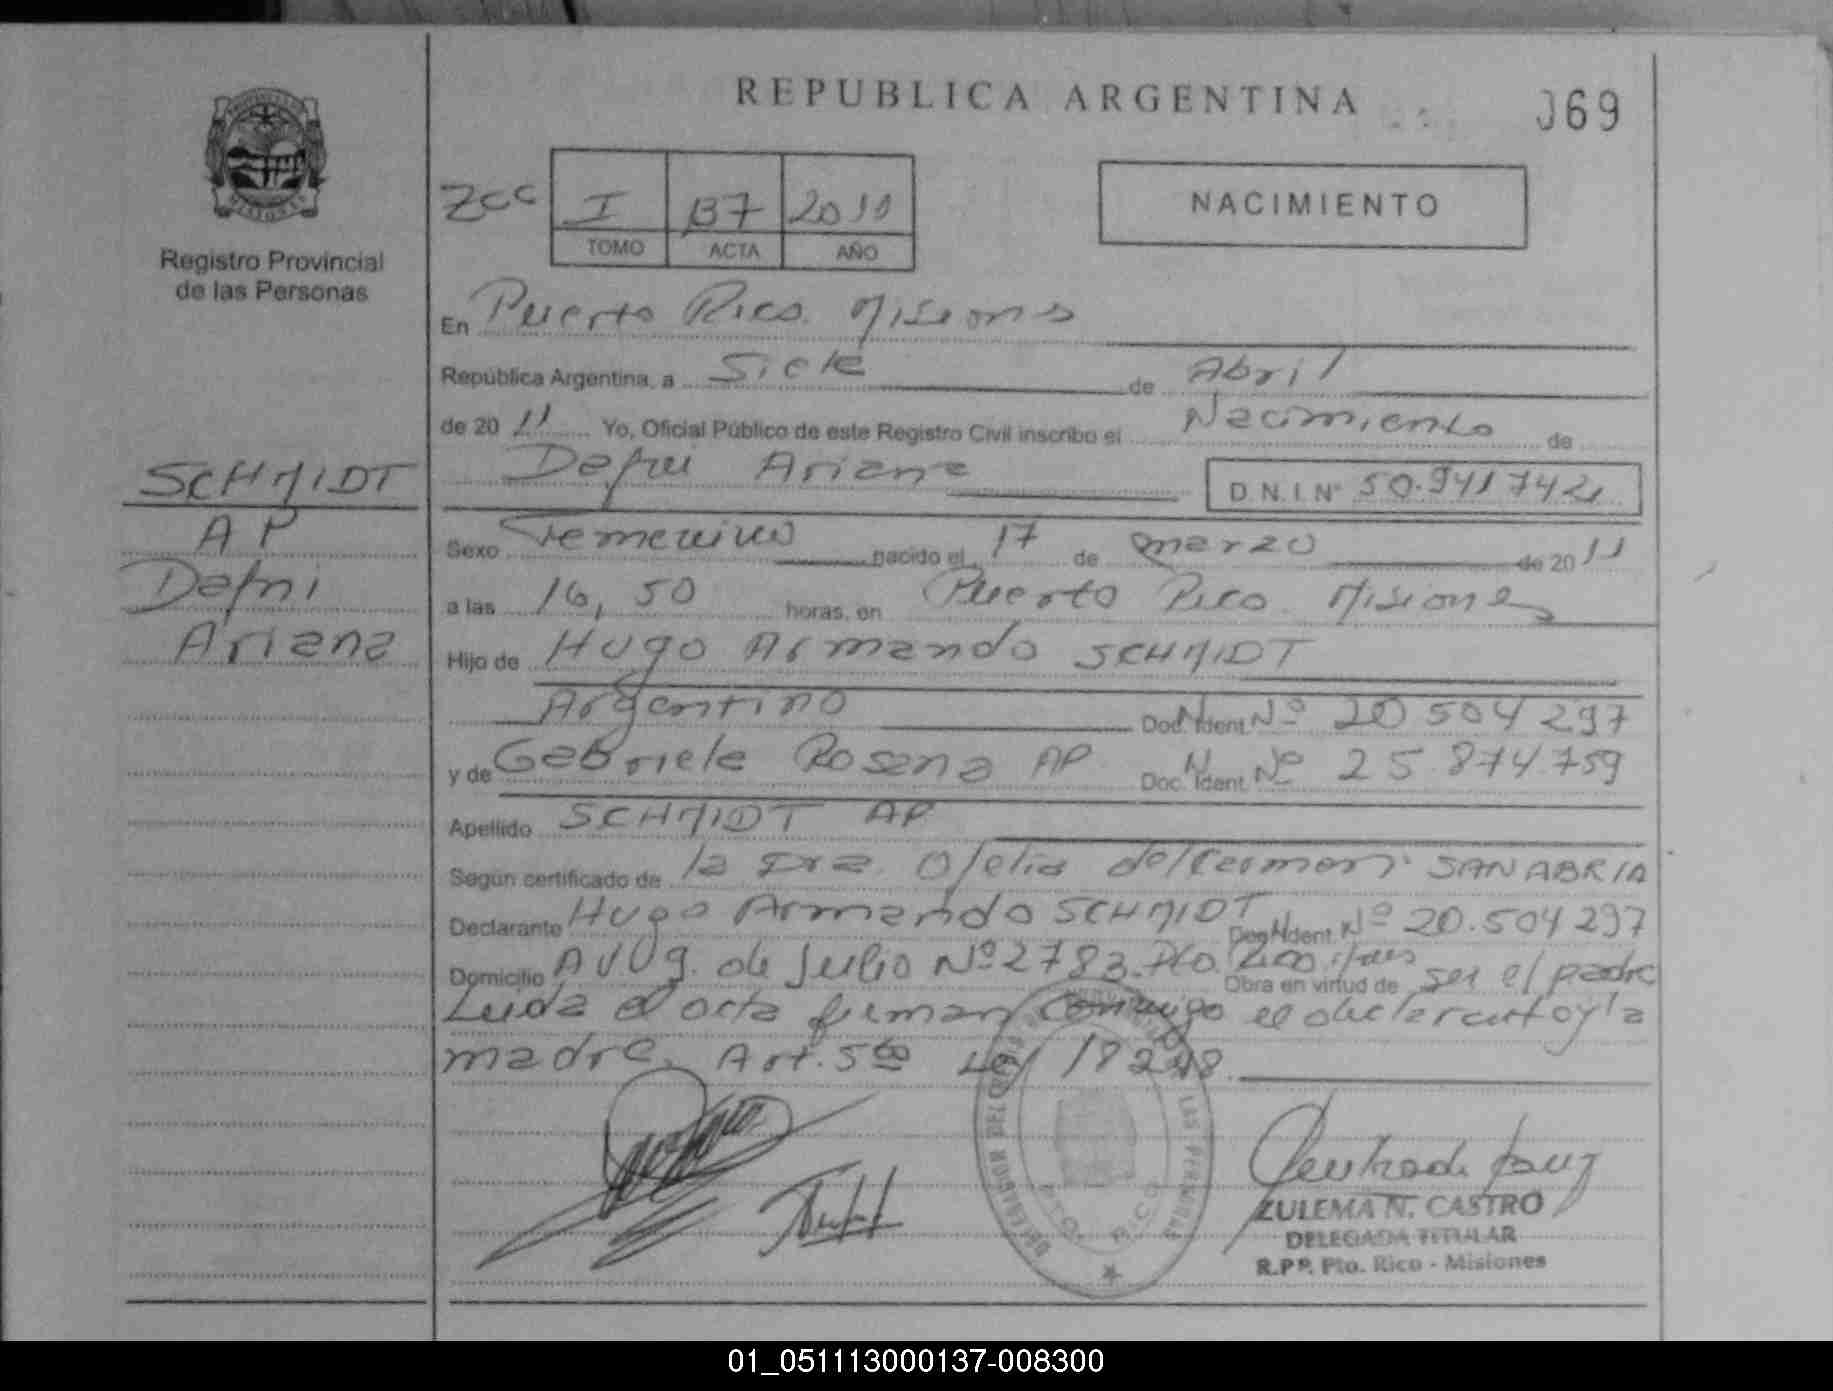 REPUBLICA ARGENTINA
069
ZCC
I 137 2011
TOMO ACTA AÑO
NACIMIENTO
Registro Provincial
de las Personas
En Puerto Rico. Misiones
República Argentina, a Siete de Abril
de 20 11 Yo, Oficial Público de este Registro Civil inscribo el Nacimiento de
Dafni Ariana D.N.I. Nº 50.941742
SCHMIDT
AP
Dafni
Ariana
Sexo Femenino nacido el 17 de marzo de 20 11
a las 16,50 horas, en Puerto Rico Misiones
Hijo de Hugo Armando SCHMIDT
Argentino Doc. N. Ident. Nº 20 504 297
y de Gabriela Rosana AP Doc. N. Ident. Nº 25.874.759
Apellido SCHMIDT AP
Según certificado de la Dra. Ofelia del Carmen SANABRIA
Declarante Hugo Armando SCHMIDT Doc. N. Ident. Nº 20.504 297
Domicilio AV 09. de Julio Nº 2783. Pto. Rico Obra en virtud de ser el padre
Leida el acta firman conmigo el declarante y la
madre. Art. 5to Ley 18248.
DELEGACION DEL REGISTRO PROVINCIAL DE LAS PERSONAS
PTO. RICO
ZULEMA N. CASTRO
DELEGADA TITULAR
R.P.P. Pto. Rico - Misiones
01_051113000137-008300